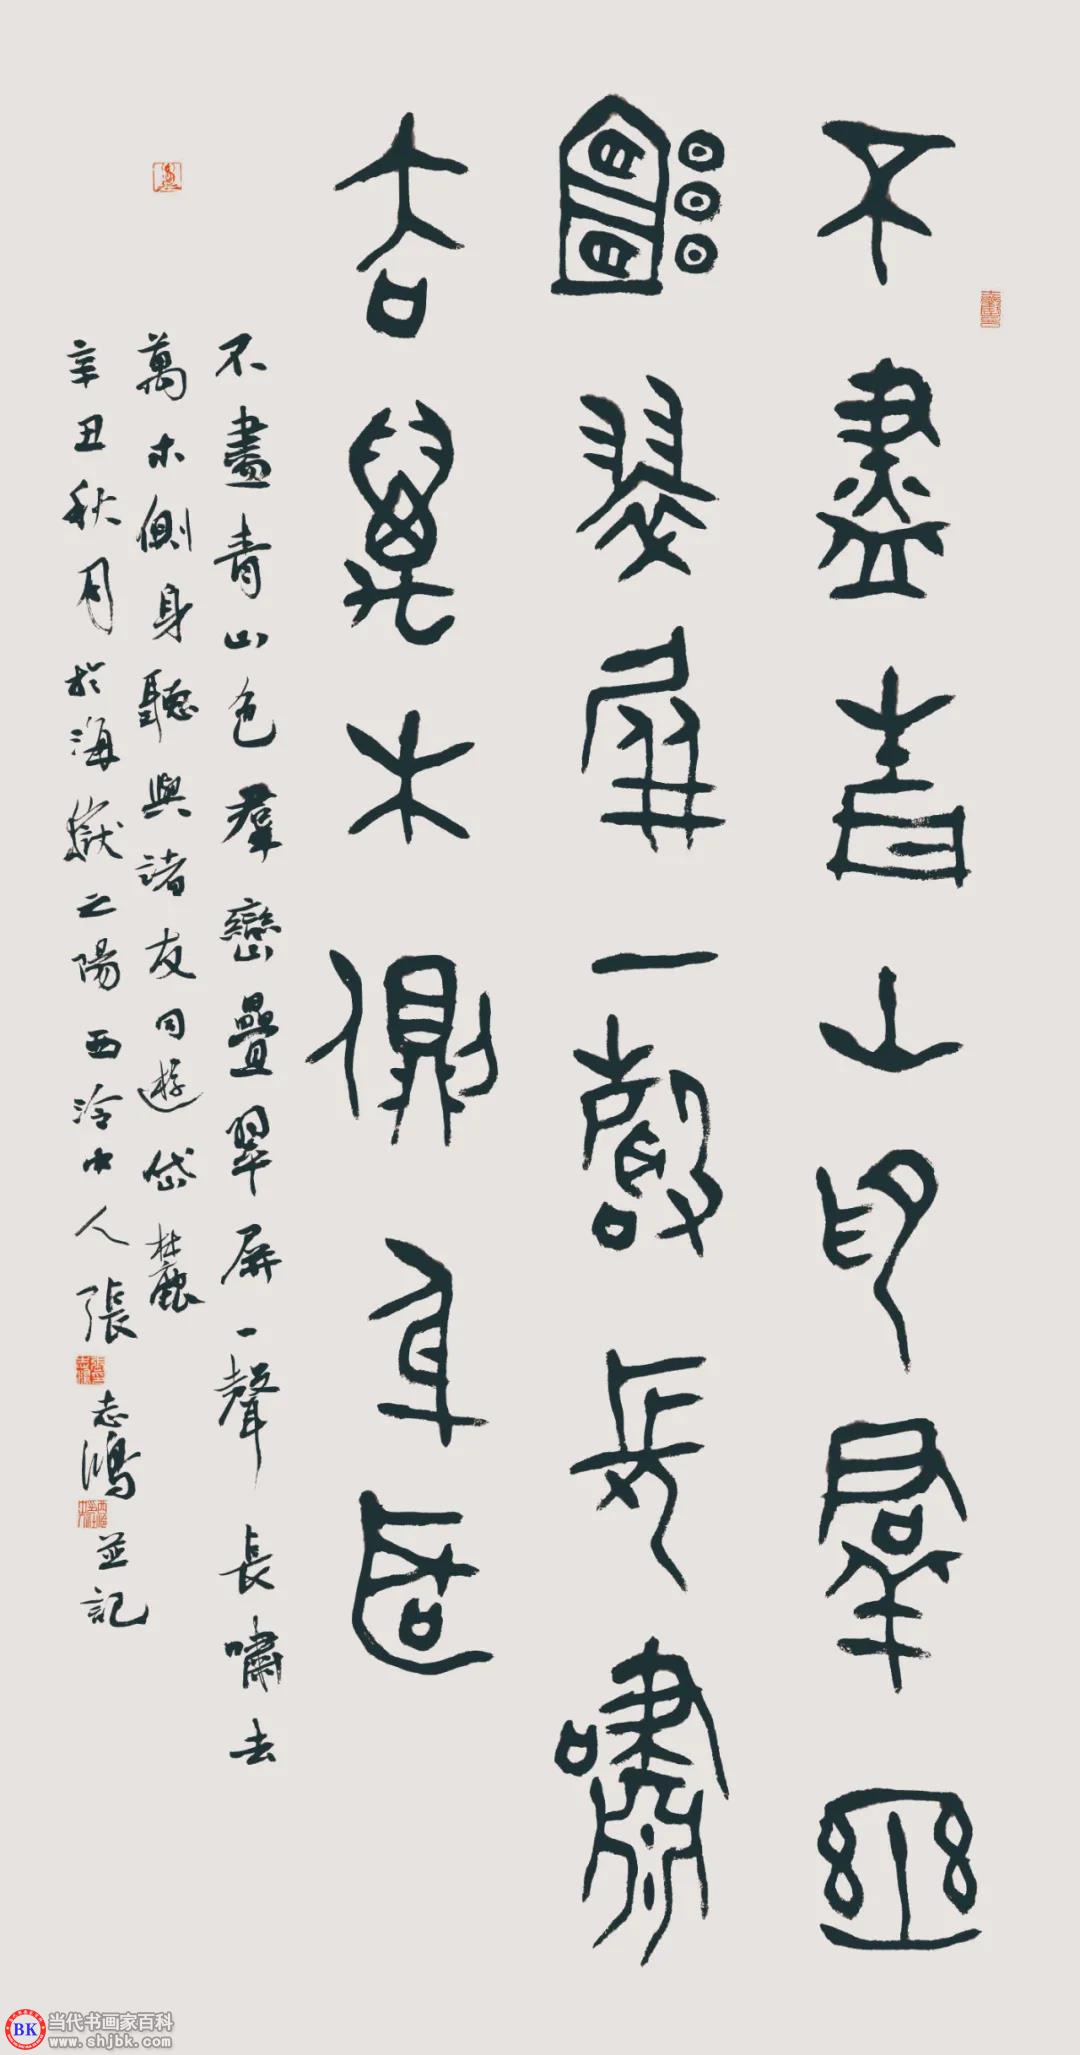 不盡青山色群巒
疊翠屏一聲長嘯
去萬木側身聽
不盡青山色羣巒疊翠屏一聲長嘯去
萬木側身聽與諸友同遊岱麓
辛丑秋月於海嶽之陽西泠中人張志鴻並記
BK 当代书画家百科
www.shjbk.com